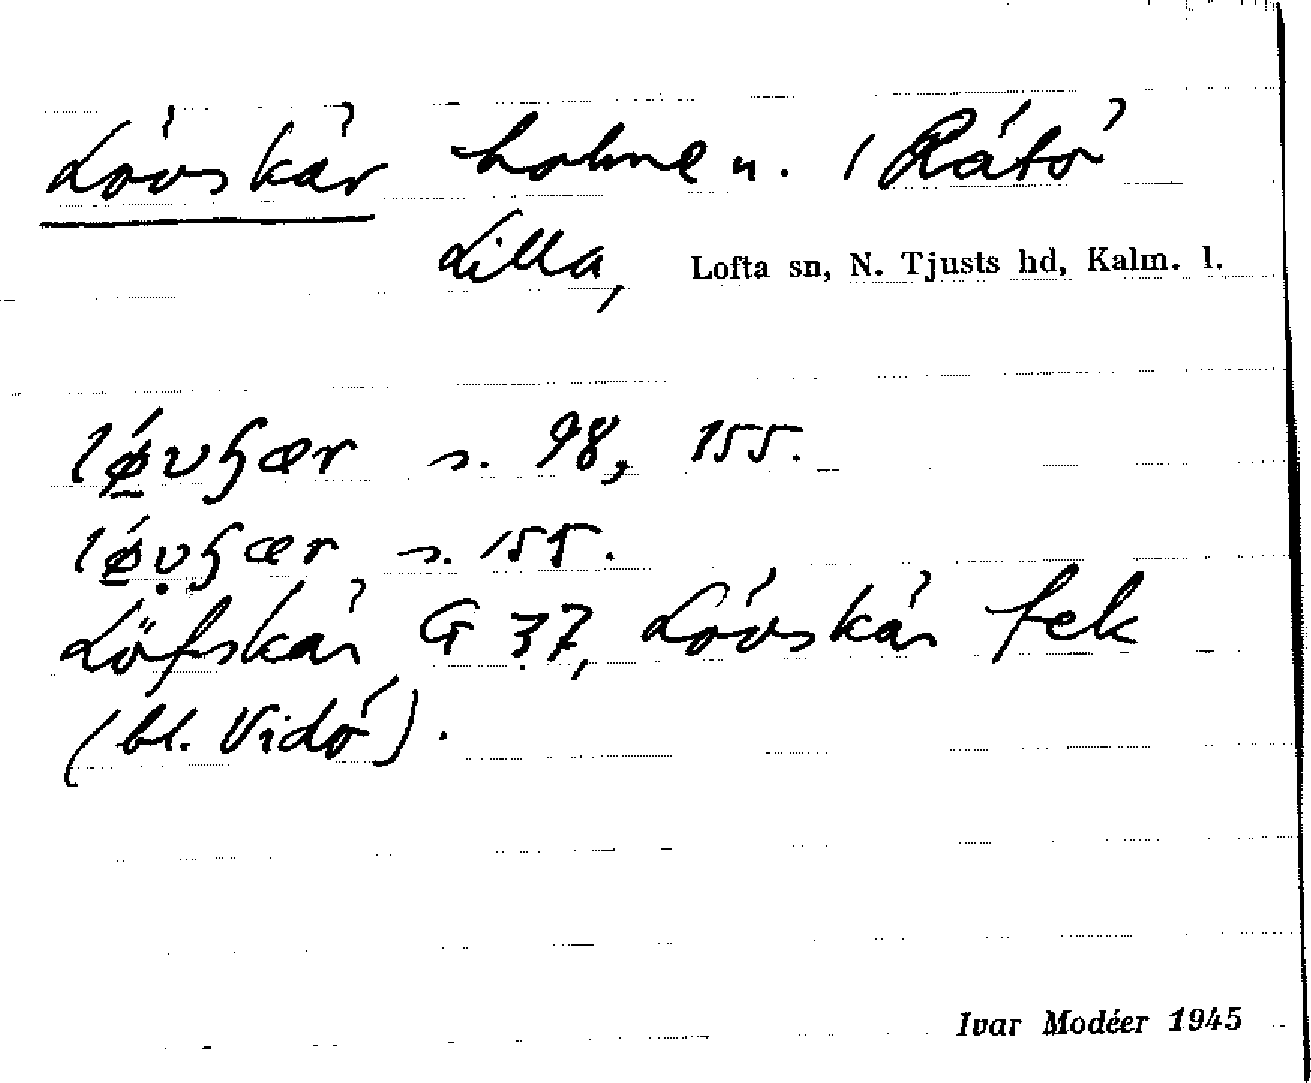 Lövskär holme n. i Råtö
Lilla, Lofta sn, N. Tjusts hd, Kalm. l.
s. 98, 155.
s. 155.
Löfskär G 37, Lövskär fek
(bl. Vidö).
Ivar Modéer 1945